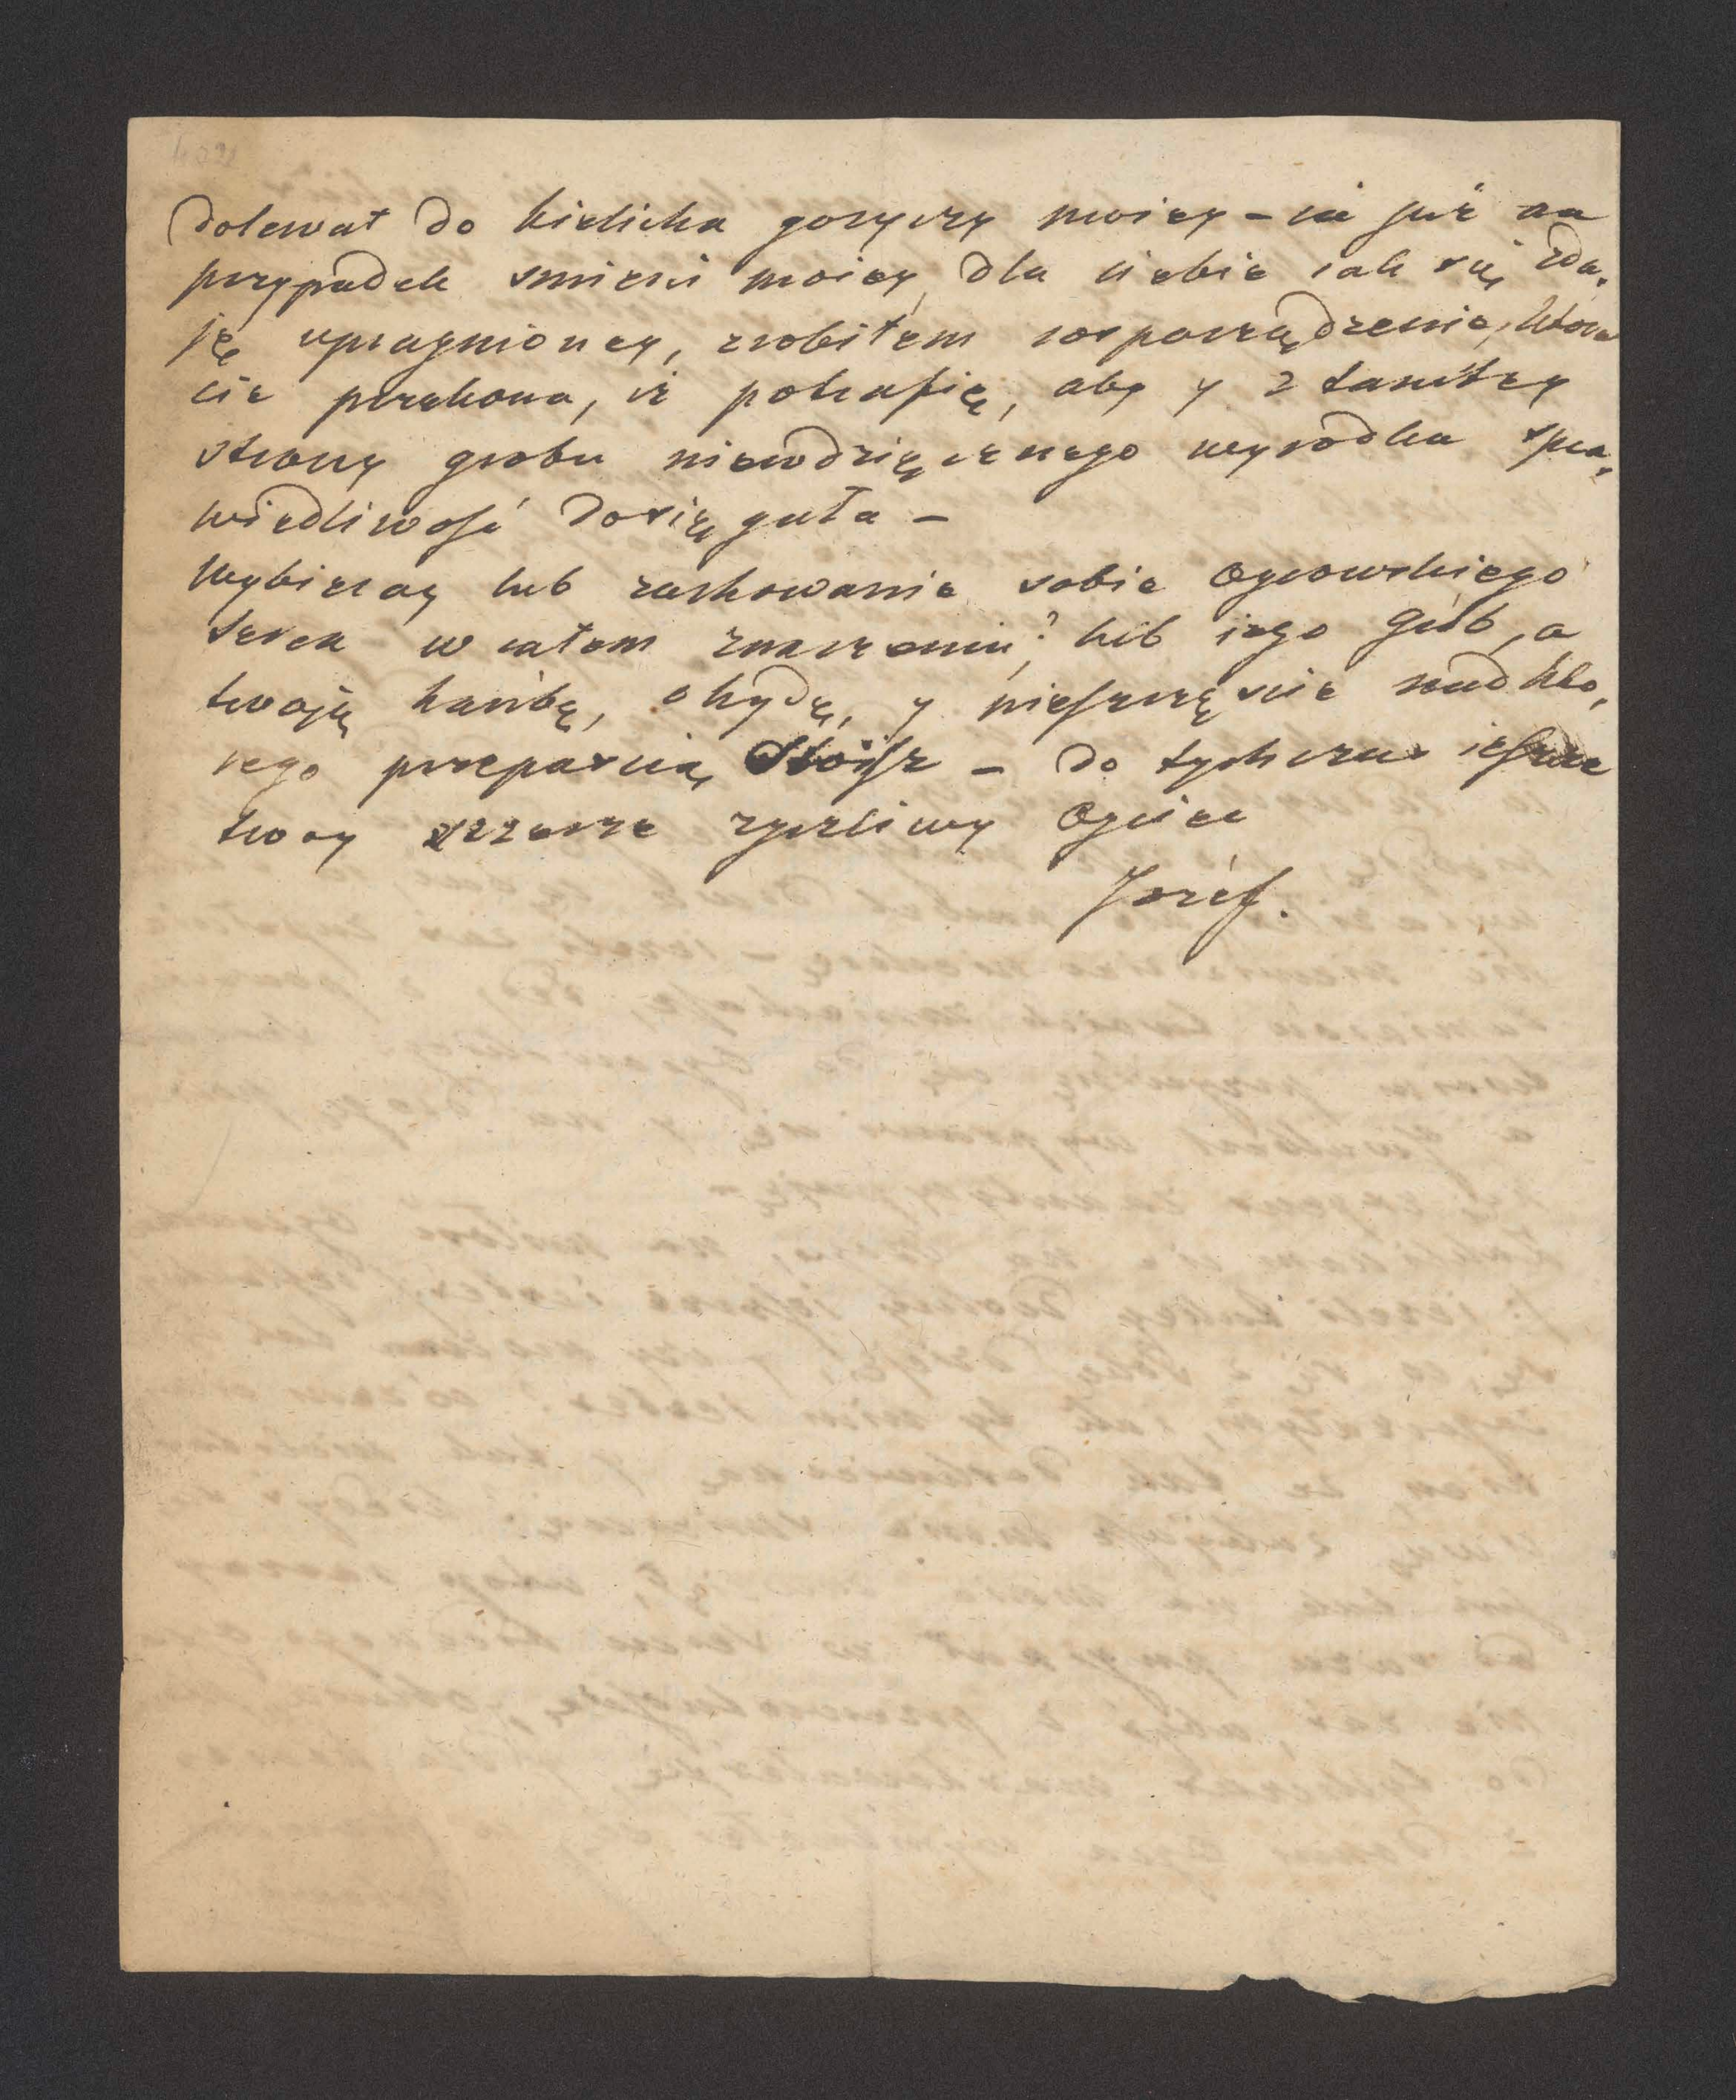 dolewał do kielicha goryczy moiey – ia już na
przypadek smierci moiey, dla ciebie iak się zda-
ję upragnioney, zrobiłem rosporządzenie, ktore
cie przekona, iż potrafię, aby y z tamtey
strony grobu niewdzięcznego wyrodka spra-
wiedliwość dosięgała –
Wybieray lub zachowanie sobie Oycowskiego
serca w całem znaczeniu, lub iego Grób, a
twoję hańbę, ohydę, y nieszczęscie nad kto-
rego przepascią stoisz – do tych czas ieszcze
twoy szczerze zyczliwy Oyciec
Jozéf.